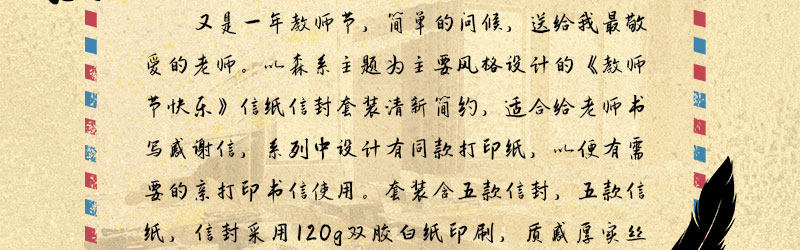 又是一年教师节，简单的问候，送给我最敬
爱的老师。以森系主题为主要风格设计的《教师
节快乐》信纸信封套装清新简约，适合给老师书
写感谢信，系列中设计有同款打印纸，以便有需
要的亲打印书信使用。套装含五款信封，五款信
纸，信封采用120g双胶白纸印刷，质感厚实丝